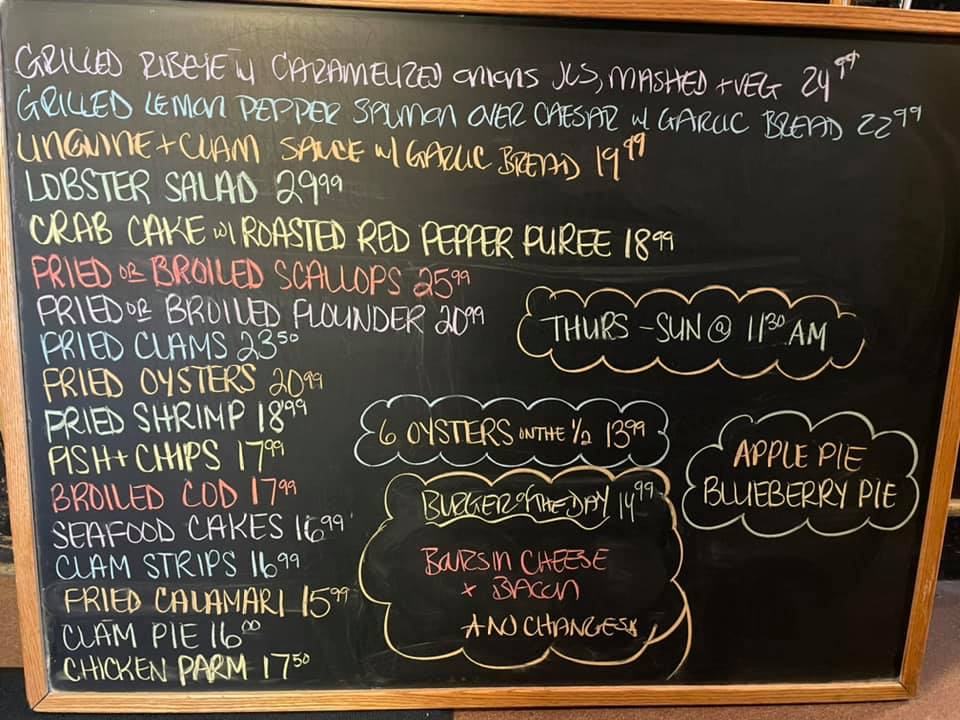 GRILLED RIBEYE W/ CARAMELIZED ONIONS JUS, MASHED + VEG 24 99
GRILLED LEMON PEPPER SALMON OVER CAESAR W/ GARLIC BREAD 22 99
LINGUINE + CLAM SAUCE W/ GARLIC BREAD 19 99
LOBSTER SALAD 29 99
CRAB CAKE W/ ROASTED RED PEPPER PUREE 18 99
FRIED OR BROILED SCALLOPS 25 99
FRIED OR BROILED FLOUNDER 20 99
FRIED CLAMS 23 50
FRIED OYSTERS 20 99
FRIED SHRIMP 18 99
FISH + CHIPS 17 99
BROILED COD 17 99
SEAFOOD CAKES 16 99
CLAM STRIPS 16 99
FRIED CALAMARI 15 99
CLAM PIE 16 00
CHICKEN PARM 17 50
THURS - SUN @ 11 30 AM
6 OYSTERS ON THE 1/2 13 99
BURGER OF THE DAY 14 99
BOURSIN CHEESE
+ BACON
* NO CHANGES *
APPLE PIE
BLUEBERRY PIE